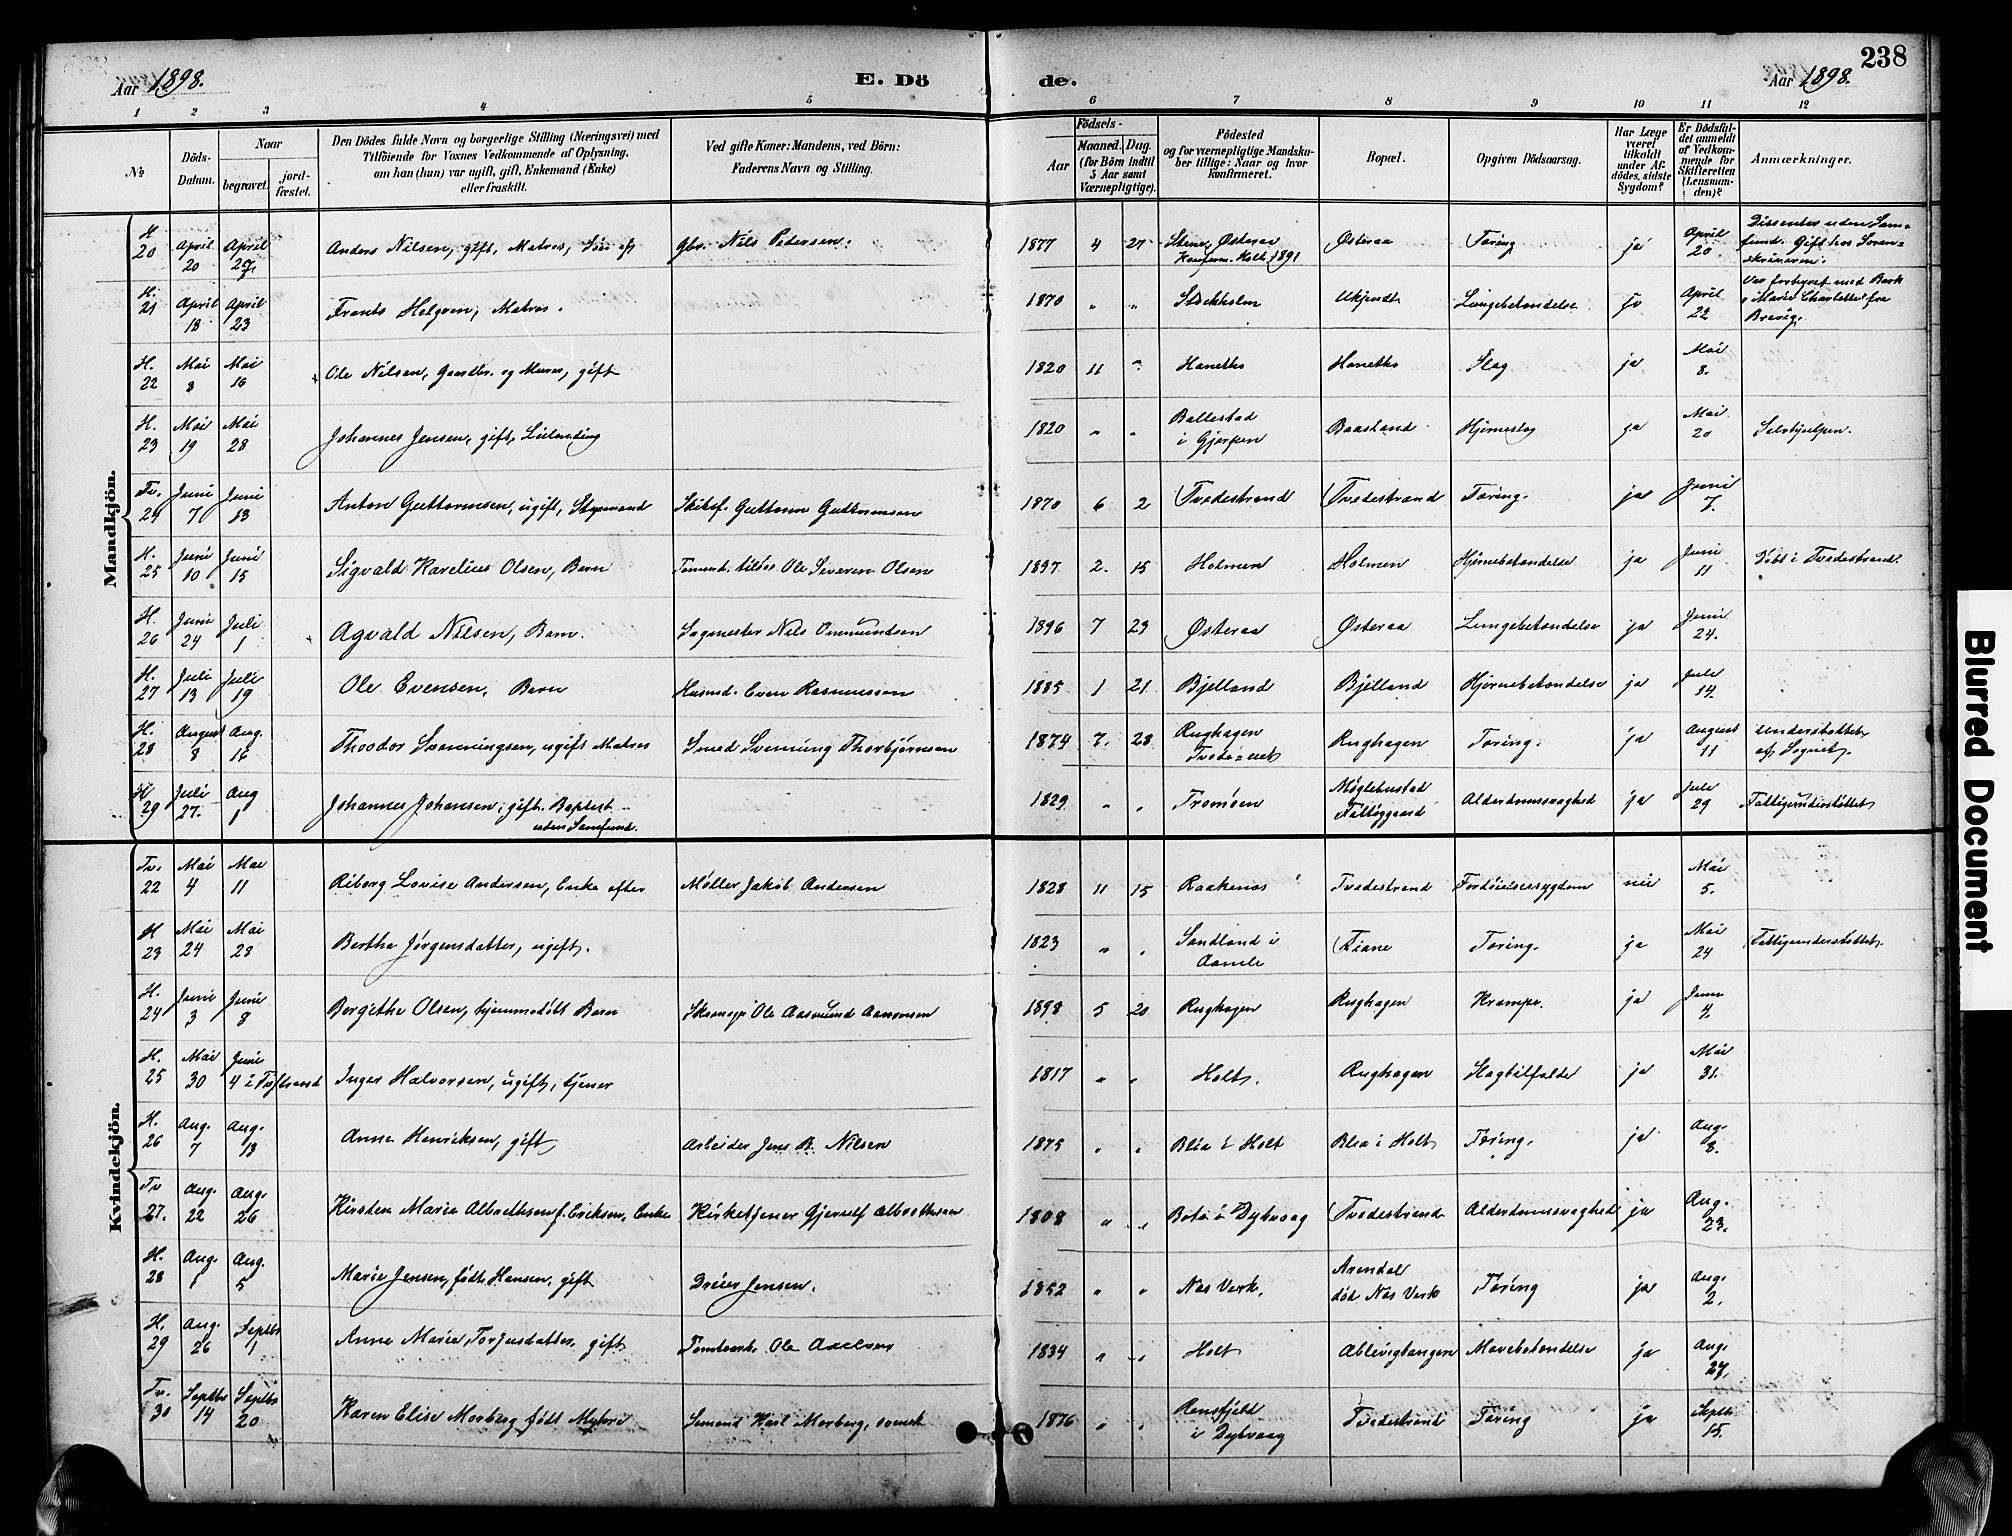 238
Aar 1898. E. Dö de. Aar 1898.
1 2 3 4 5 6 7 8 9 10 11 12
№
Döds-Datum.
Naar
begravet. jord-fæstet.
Den Dödes fulde Navn og borgerlige Stilling (Næringsvei) med
Tilföiende for Voxnes Vedkommende af Oplysning,
om han (hun) var ugift, gift, Enkemand (Enke)
eller fraskilt.
Ved gifte Koner: Mandens, ved Börn:
Faderens Navn og Stilling.
Födsels-
Aar
Maaned. Dag.
(for Börn indtil
5 Aar samt
Værnepligtige).
Födested
og for værnepligtige Mandskaber tillige: Naar og hvor
konfirmeret.
Bopæl.
Opgiven Dödsaarsag.
Har Læge
været
tilkaldt
under Afdödes, sidste
Sygdom?
Er Dödsfaldet anmeldt
af Vedkommende for
Skifteretten
(Lensmanden)?
Anmærkninger.
Mandkjön.
H 20 April 20 April 27 Anders Nilsen, gift, Matros, Søn af Gbr. Nils Pedersen. 1877 4 27 Stene, Østeraa Konfirm. Holt 1891 Østeraa Tæring ja April 20 Dissenter uden Samfund. Gift hos Sorenskriveren.
H. 21 April 18 April 23 Frants Helgren, Matros. 1870 " " Stockholm Ukjendt Lungebetændelse ja April 22 Var forhyret med Bark "Marie Charlotte" fra Brevig.
H. 22 Mai 8 Mai 16 Ole Nilsen, Gaardbr. og Murer, gift 1820 11 " Hanetho Hanetho Slag ja Mai 8.
H. 23 Mai 19 Mai 28 Johannes Jensen, gift, Leilænding 1820 " " Ballestad i Gjerpen Baasland Hjerneslag ja Mai 20 Selvhjulpen.
Tv. 24 Juni 7 Juni 13 Anton Guttormsen, ugift, Styrmand Skibsf. Guttorm Guttormsen 1870 6 2 Tvedestrand Tvedestrand Tæring. ja Juni 7.
H. 25 Juni 10 Juni 15 Sigvald Karelius Olsen, Barn Tømmd. tilsøs Ole Severin Olsen 1897 2. 15 Holmen Holmen Hjernebetændelse ja Juni 11 Døbt i Tvedestrand.
H. 26 Juni 24 Juli 1 Agvald Nilsen, Barn. Sagmester Nils Ommundsen 1896 7 29 Østeraa Østeraa Lungebetændelse ja Juni 24.
H. 27 Juli 13 Juli 19 Ole Evensen, Barn Husmd. Even Rasmussen 1885 1 21 Bjelland Bjelland Hjernebetændelse ja Juli 14.
H. 28 August 8 Aug. 16 Theodor Svenningsen, ugift Matros Smed Svenning Thorbjørnsen 1874 7. 28 Rughagen Rughagen Tæring. ja August 11 Understøttet af Sognet.
H 29 Juli 27. Aug 1 Johannes Johansen, gift. Baptist uden Samfund. 1829 " " Tromøen Møglebustad Fattiggaard Alderdomssvaghed ja Juli 29 Fattigunderstøttet
Kvindekjön.
Tv. 22 Mai 4 Mai 11 Riborg Lovise Andersen, Enke efter Møller Jakob Andersen 1828 11 15 Raakenes Tvedestrand Fordøielsessygdom nei Mai 5.
H 23 Mai 24 Mai 28 Berthe Jørgensdatter, ugift. 1823 " " Sandland i Aamli Fiane Tæring. ja Mai 24 Fattigunderstøttet.
H. 24 Juni 3 Juni 8 Bergithe Olsen, hjemmedøbt Barn Skomagr Ole Aasmund Aanonsen 1898 5 20 Rughagen Rughagen Krampe. ja Juni 4.
H. 25 Mai 30 Juni 4 i Tv.strand Inger Halvorsen, ugift, tjener 1817 " " Holt. Rughagen Hagtilfælde ja Mai 31.
H. 26 Aug. 7 Aug. 13 Anne Henriksen, gift Arbeider Jens B. Nilsen 1875 " " Blia i Holt Blia i Holt Tæring. ja Aug 8.
Tv 27. Aug. 22 Aug. 26 Kirsten Marie Albrethsen f. Eriksen, Enke Kirketjener Gjerulf Albrethsen 1808 " " Bota i Dybvaag Tvedestrand Alderdomssvaghed ja Aug. 23.
H. 28 Aug. 1 Aug. 5 Marie Jensen, født Hansen, gift Dreier Jensen. 1852 " " Næs Værk. Arendal død Næs Værk Tæring ja Aug. 2.
H. 29 Aug. 26 Septbr 1 Anne Marie Torjusdatter, gift Tømbesk. Ole Axelsen 1834 " " Holt Ablevigtangen Mavebetændelse ja Aug. 27.
Tv. 30 Septbr 14 Septbr 20 Karen Elise Morberg født Myhre Sømand Karl Morberg, svensk 1876 " " i Dybvaag Tvedestrand Tæring ja Septbr 15.
Blurred Document